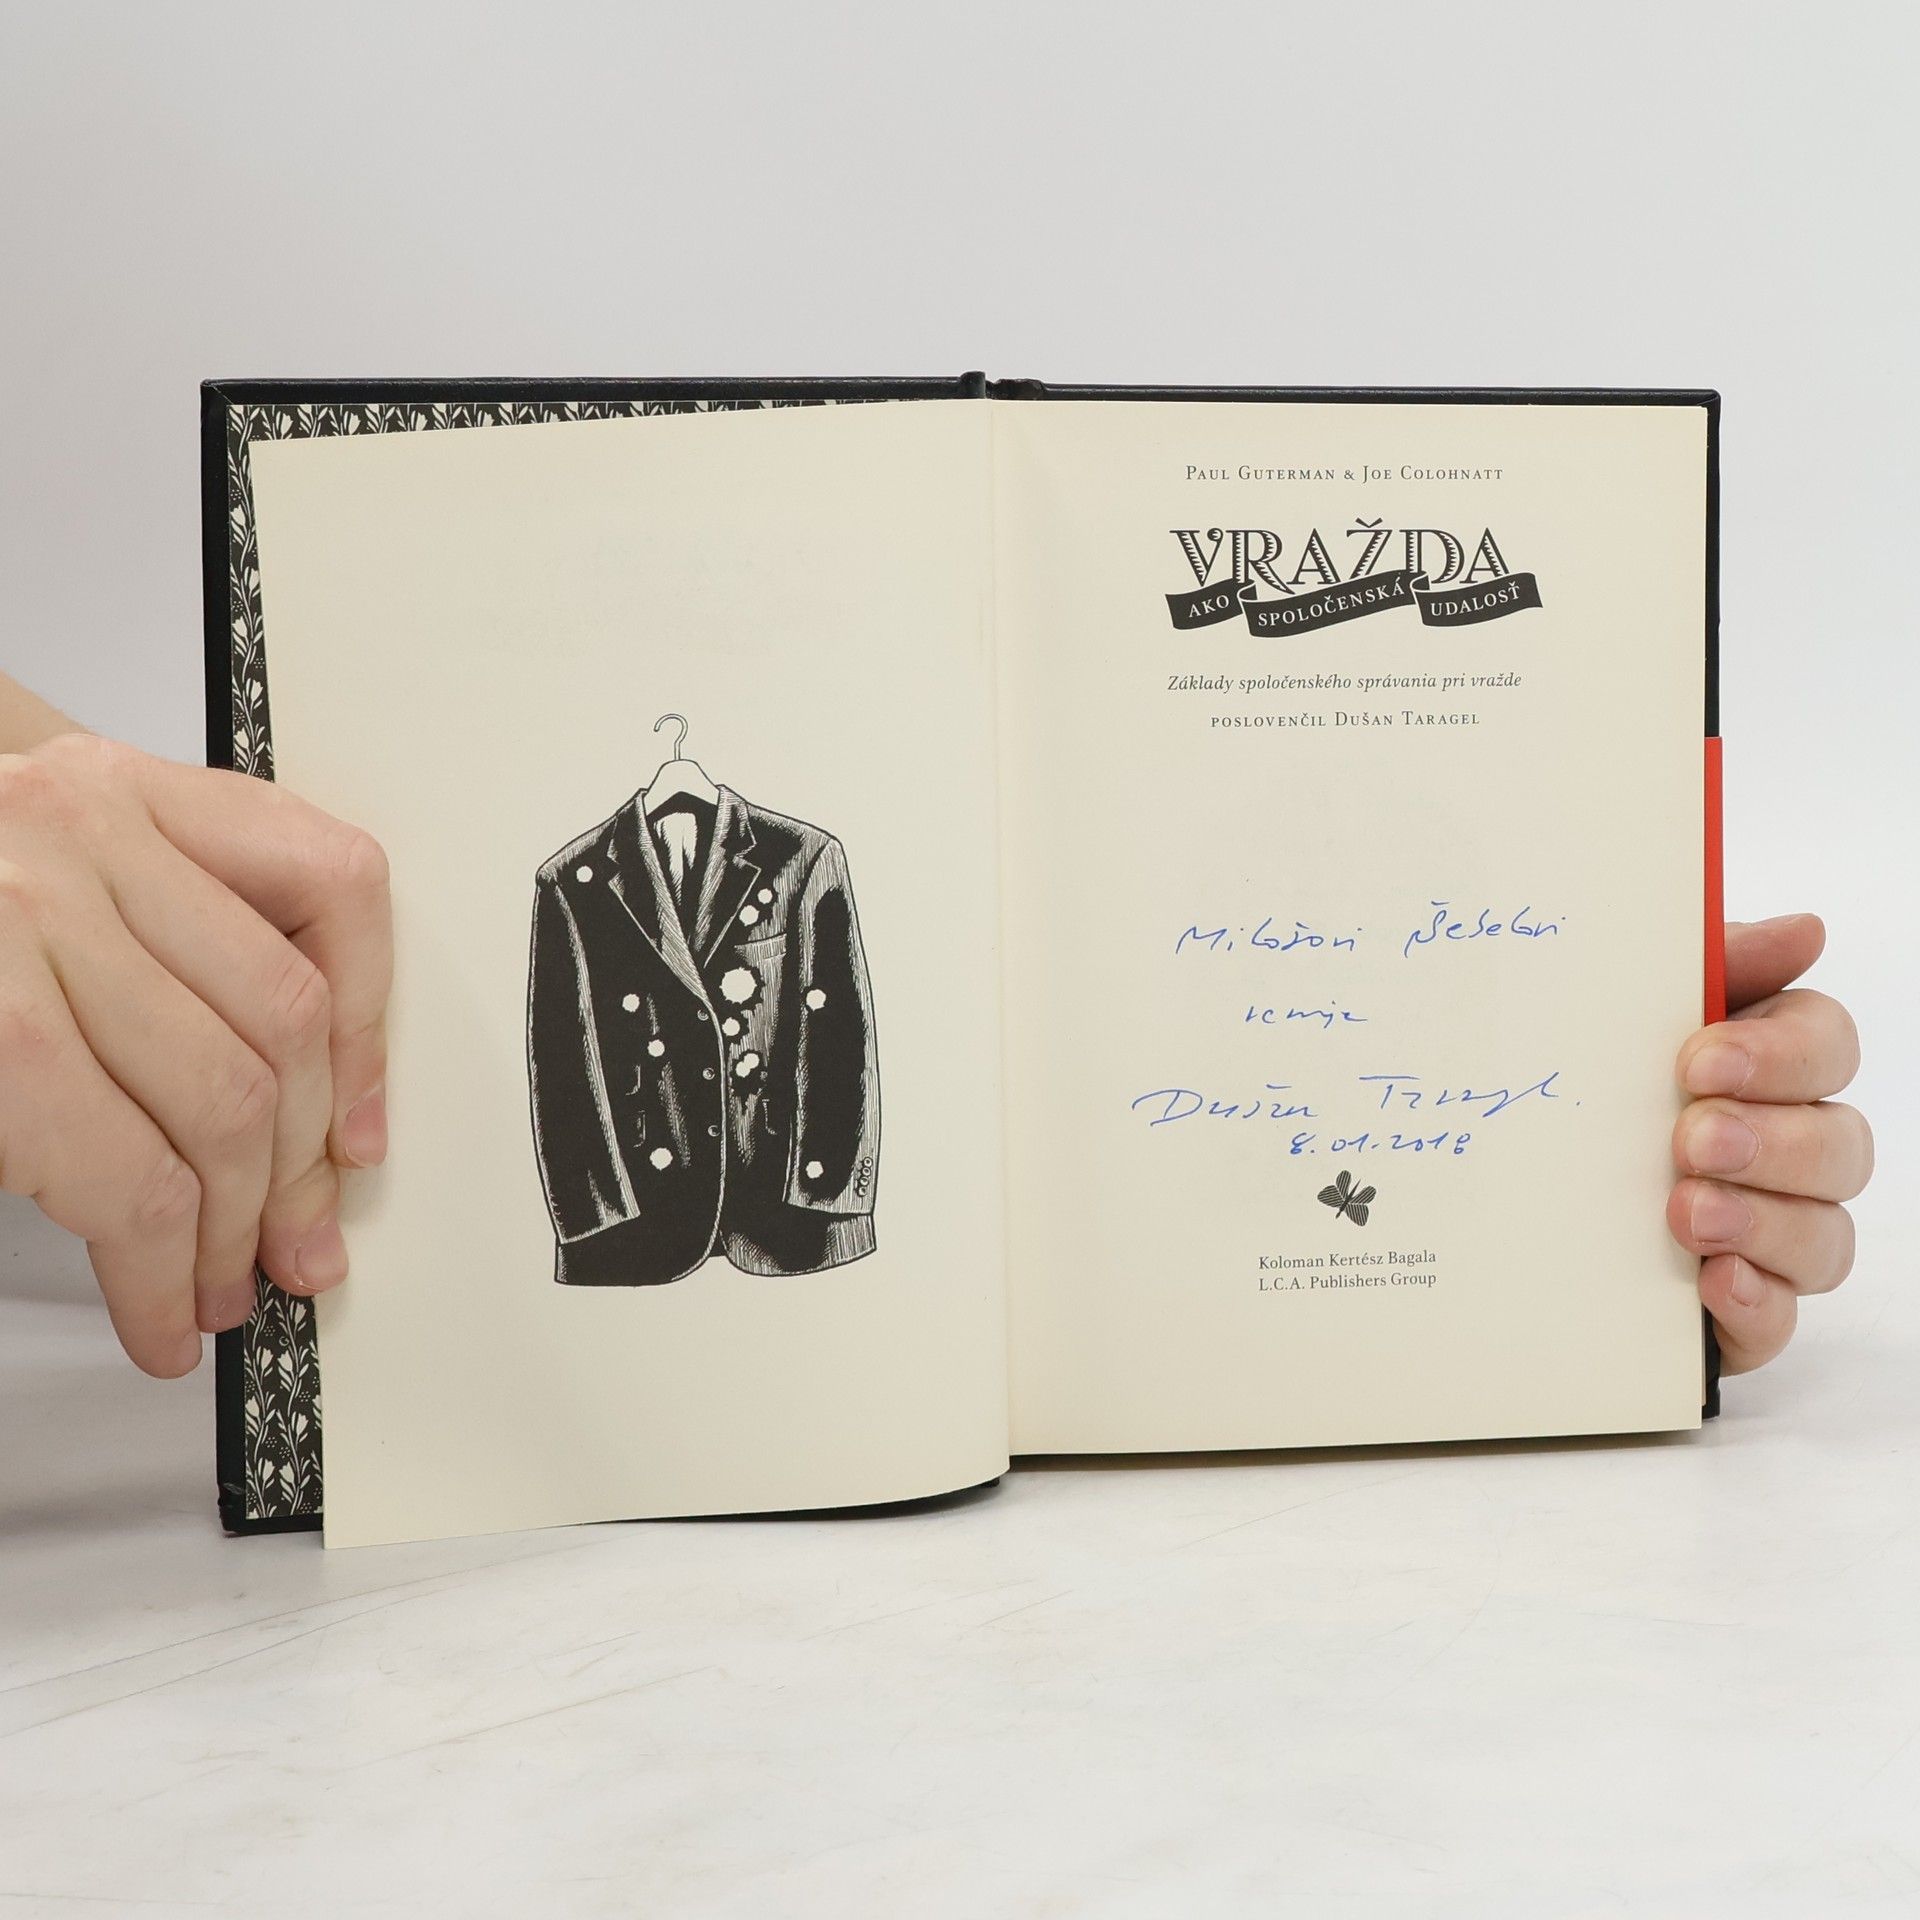 PAUL GUTERMAN & JOE COLOHNATT
VRAŽDA
AKO SPOLOČENSKÁ UDALOSŤ
Základy spoločenského správania pri vražde
POSLOVENČIL DUŠAN TARAGEL
Milošovi
venuje
Dušan Taragel.
8.01.2018
Koloman Kertész Bagala
L.C.A. Publishers Group